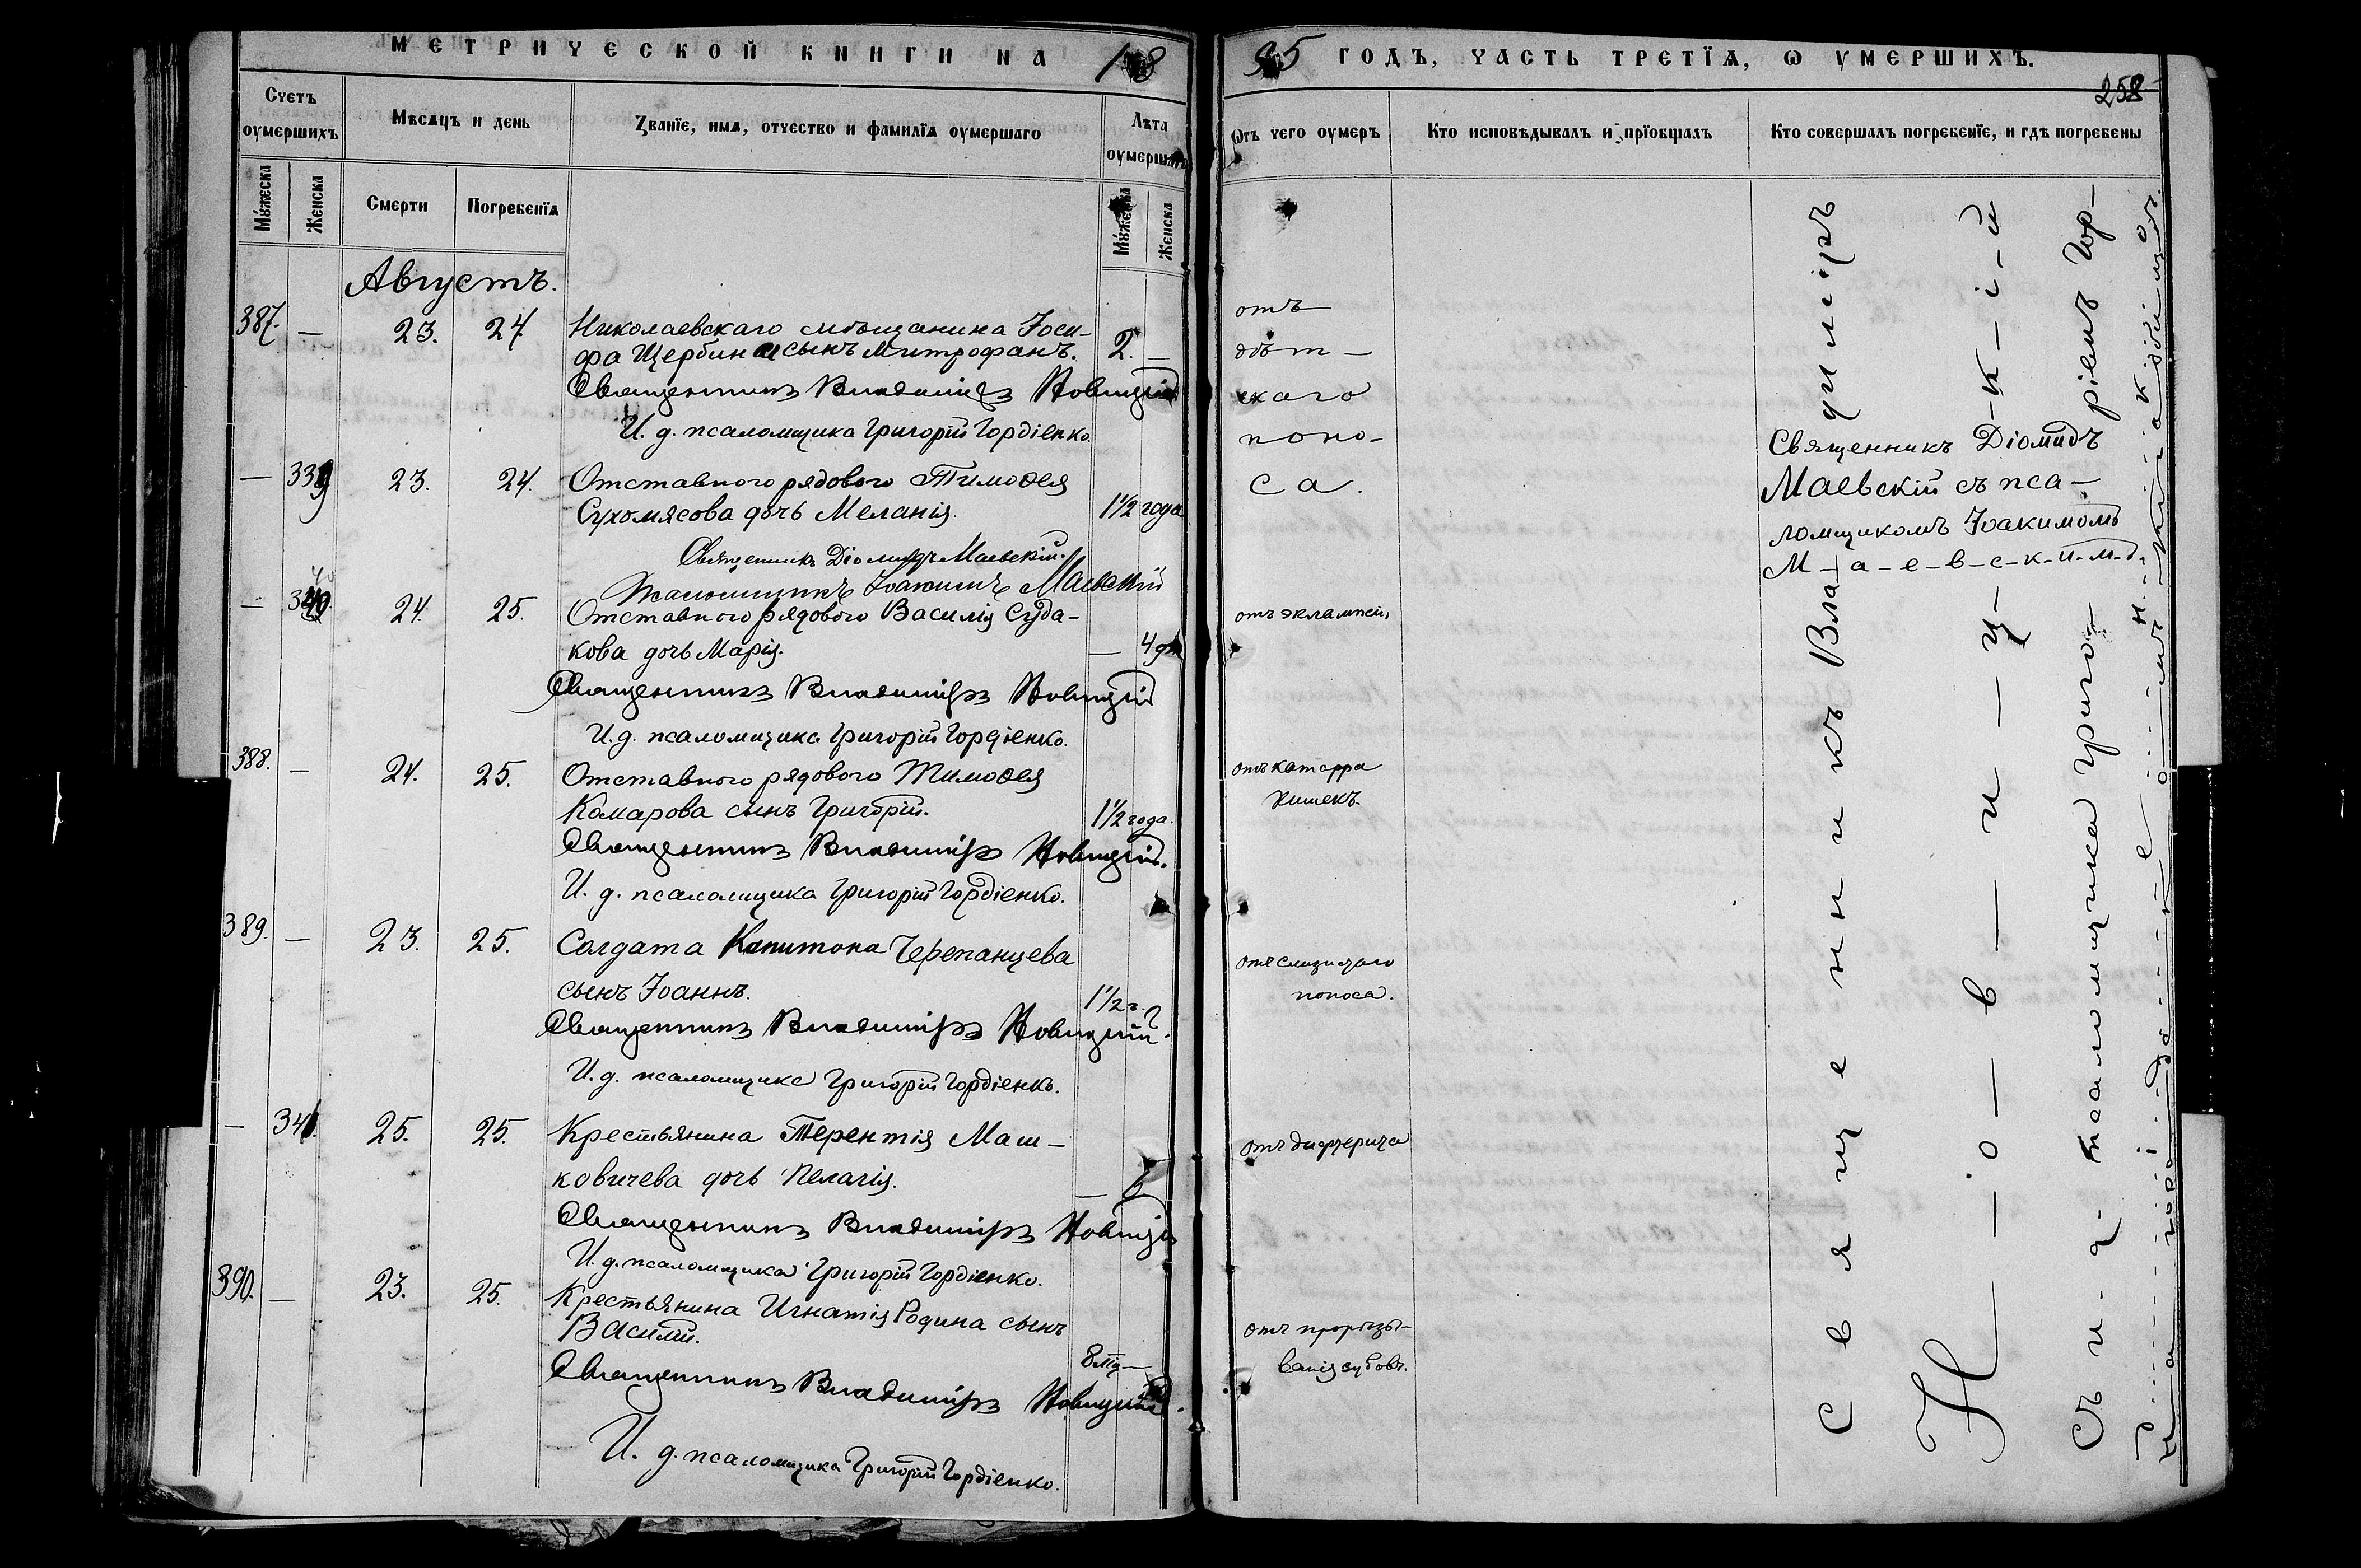 МЕТРИЧЕСКОЙ КНИГИ НА 18
Счетъ оумершихъ
Мѣсяцъ и день
Званїе, имя, отчество и фамилїя оумершаго
Лѣта оумершаго
Мꙋжеска
Женска
Смерти
Погребенїя
Мꙋжеска
Женска
Августъ.
387. — 23. 24. Николаевскаго мѣщанина Іоси-
фа Щербины сынъ Митрофанъ. 2. —
Священникъ Владиміръ Новицкій
И. д. псаломщика Григорій Гордіенко.
— 339 23. 24. Отставного рядового Тимоѳея
Сухомясова дочь Меланія. 1½ года
Священникъ Діомидъ Маевскій.
Псаломщикъ Іоакимъ Маевскій
— 340. 24. 25. Отставного рядового Василія Суда-
кова дочь Марія. — 4
Священникъ Владиміръ Новицкій
И. д. псаломщика Григорій Гордіенко.
388. — 24. 25. Отставного рядового Тимоѳея
Комарова сынъ Григорій. 1½ года.
Священникъ Владиміръ Новицкій.
И. д. псаломщика Григорій Гордіенко.
389. — 23. 25. Солдата Капитона Черепанцева
сынъ Іоаннъ. 1½ г.
Священникъ Владиміръ Новицкій.
И. д. псаломщика Григорій Гордіенко.
— 341. 25. 25. Крестьянина Терентія Маш-
ковичева дочь Пелагія. —
Священникъ Владиміръ Новицкій
И. д. псаломщика Григорій Гордіенко.
390. — 23. 25. Крестьянина Игнатія Родина сынъ
Василій. 8 —
Священникъ Владиміръ Новицкій.
И. д. псаломщика Григорій Гордіенко.
95 ГОДЪ, ЧАСТЬ ТРЕТЇЯ, Ѡ УМЕРШИХЪ.
258
Ѿтъ чего оумеръ
Кто исповѣдывалъ и прїобщалъ
Кто совершалъ погребенїе, и гдѣ погребены
отъ
дѣт-
скаго
поно-
са.
отъ эклампсіи
отъ катарра
кишекъ.
отъ слизистаго
поноса.
отъ дифтерита
отъ прорѣзы-
ванія зубовъ.
Священникъ Діомидъ
Маевскій съ пса-
ломщикомъ Іоакимомъ
М-а-е-в-с-к-и-м-ъ.
Священникъ Владиміръ
Н-о-в-и-ц-к-і-й
Съ и. д. псаломщика Григо-ріемъ Гор-